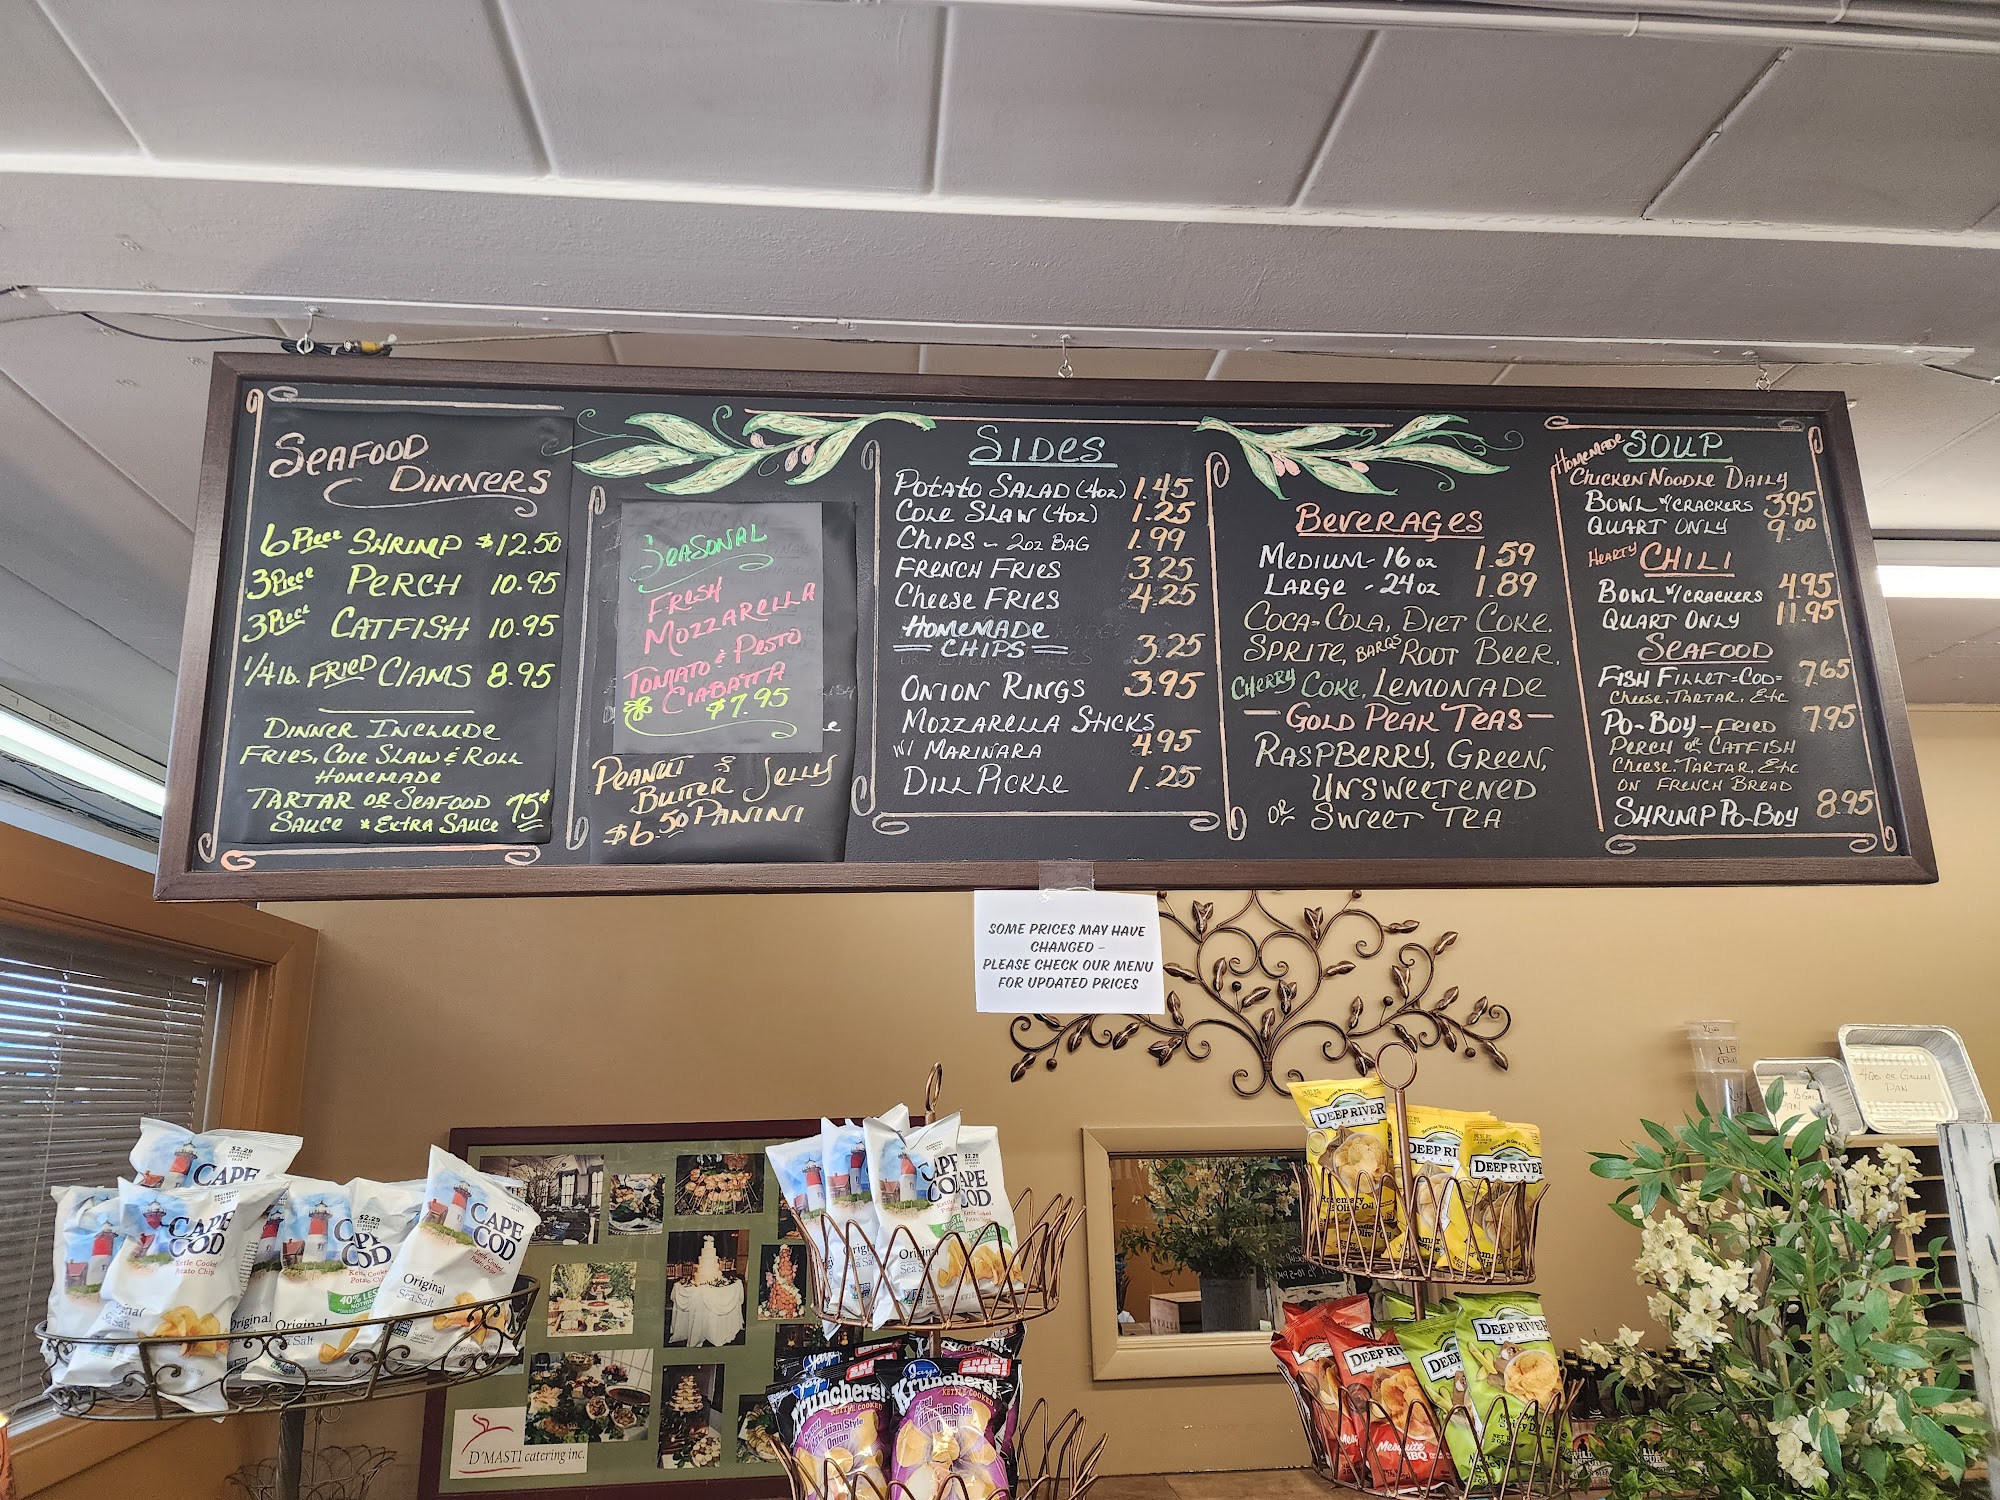 SEAFOOD
DINNERS
6 Piece SHRIMP $12.50
3 Piece PERCH 10.95
3 Piece CATFISH 10.95
1/4 lb. FRIED CLAMS 8.95
DINNER INCLUDE
FRIES, COLE SLAW & ROLL
HOMEMADE
TARTAR OR SEAFOOD
SAUCE * EXTRA SAUCE 75¢
SEASONAL
FRESH
MOZZARELLA
TOMATO & PESTO
CIABATTA
$7.95
PEANUT &
BUTTER JELLY
$6.50 PANINI
SIDES
POTATO SALAD (4oz) 1.45
COLE SLAW (4oz) 1.25
CHIPS - 2oz BAG 1.99
FRENCH FRIES 3.25
CHEESE FRIES 4.25
HOMEMADE
CHIPS 3.25
ONION RINGS 3.95
MOZZARELLA STICKS
W/ MARINARA 4.95
DILL PICKLE 1.25
BEVERAGES
MEDIUM - 16 oz 1.59
LARGE - 24 oz 1.89
COCA-COLA, DIET COKE,
SPRITE, BARQS ROOT BEER,
CHERRY COKE, LEMONADE
- GOLD PEAK TEAS -
RASPBERRY, GREEN,
UNSWEETENED
OR SWEET TEA
HOMEMADE SOUP
CHICKEN NOODLE DAILY
BOWL W/CRACKERS 3.95
QUART ONLY 9.00
HEARTY CHILI
BOWL W/CRACKERS 4.95
QUART ONLY 11.95
SEAFOOD
FISH FILLET=COD= 7.65
CHEESE, TARTAR, Etc
PO-BOY - FRIED 7.95
PERCH OR CATFISH
CHEESE, TARTAR, Etc
ON FRENCH BREAD
SHRIMP PO-BOY 8.95
SOME PRICES MAY HAVE
CHANGED -
PLEASE CHECK OUR MENU
FOR UPDATED PRICES
CAPE COD
Original
Sea Salt
$2.29
CAPE
COD
Kettle Cooked
Potato Chips
40% LESS
Original
Sea Salt
CAPE
COD
Original
Sea Salt
D'MASTI catering inc.
Jays
Krunchers!
KETTLE COOKED
Sweet
Hawaiian Style
Onion
DEEP RIVER
Rosemary
& Olive Oil
DEEP RIVER
DEEP RIVER
DEEP RIVER
Mesquite
BBQ
DEEP RIVER
1 LB